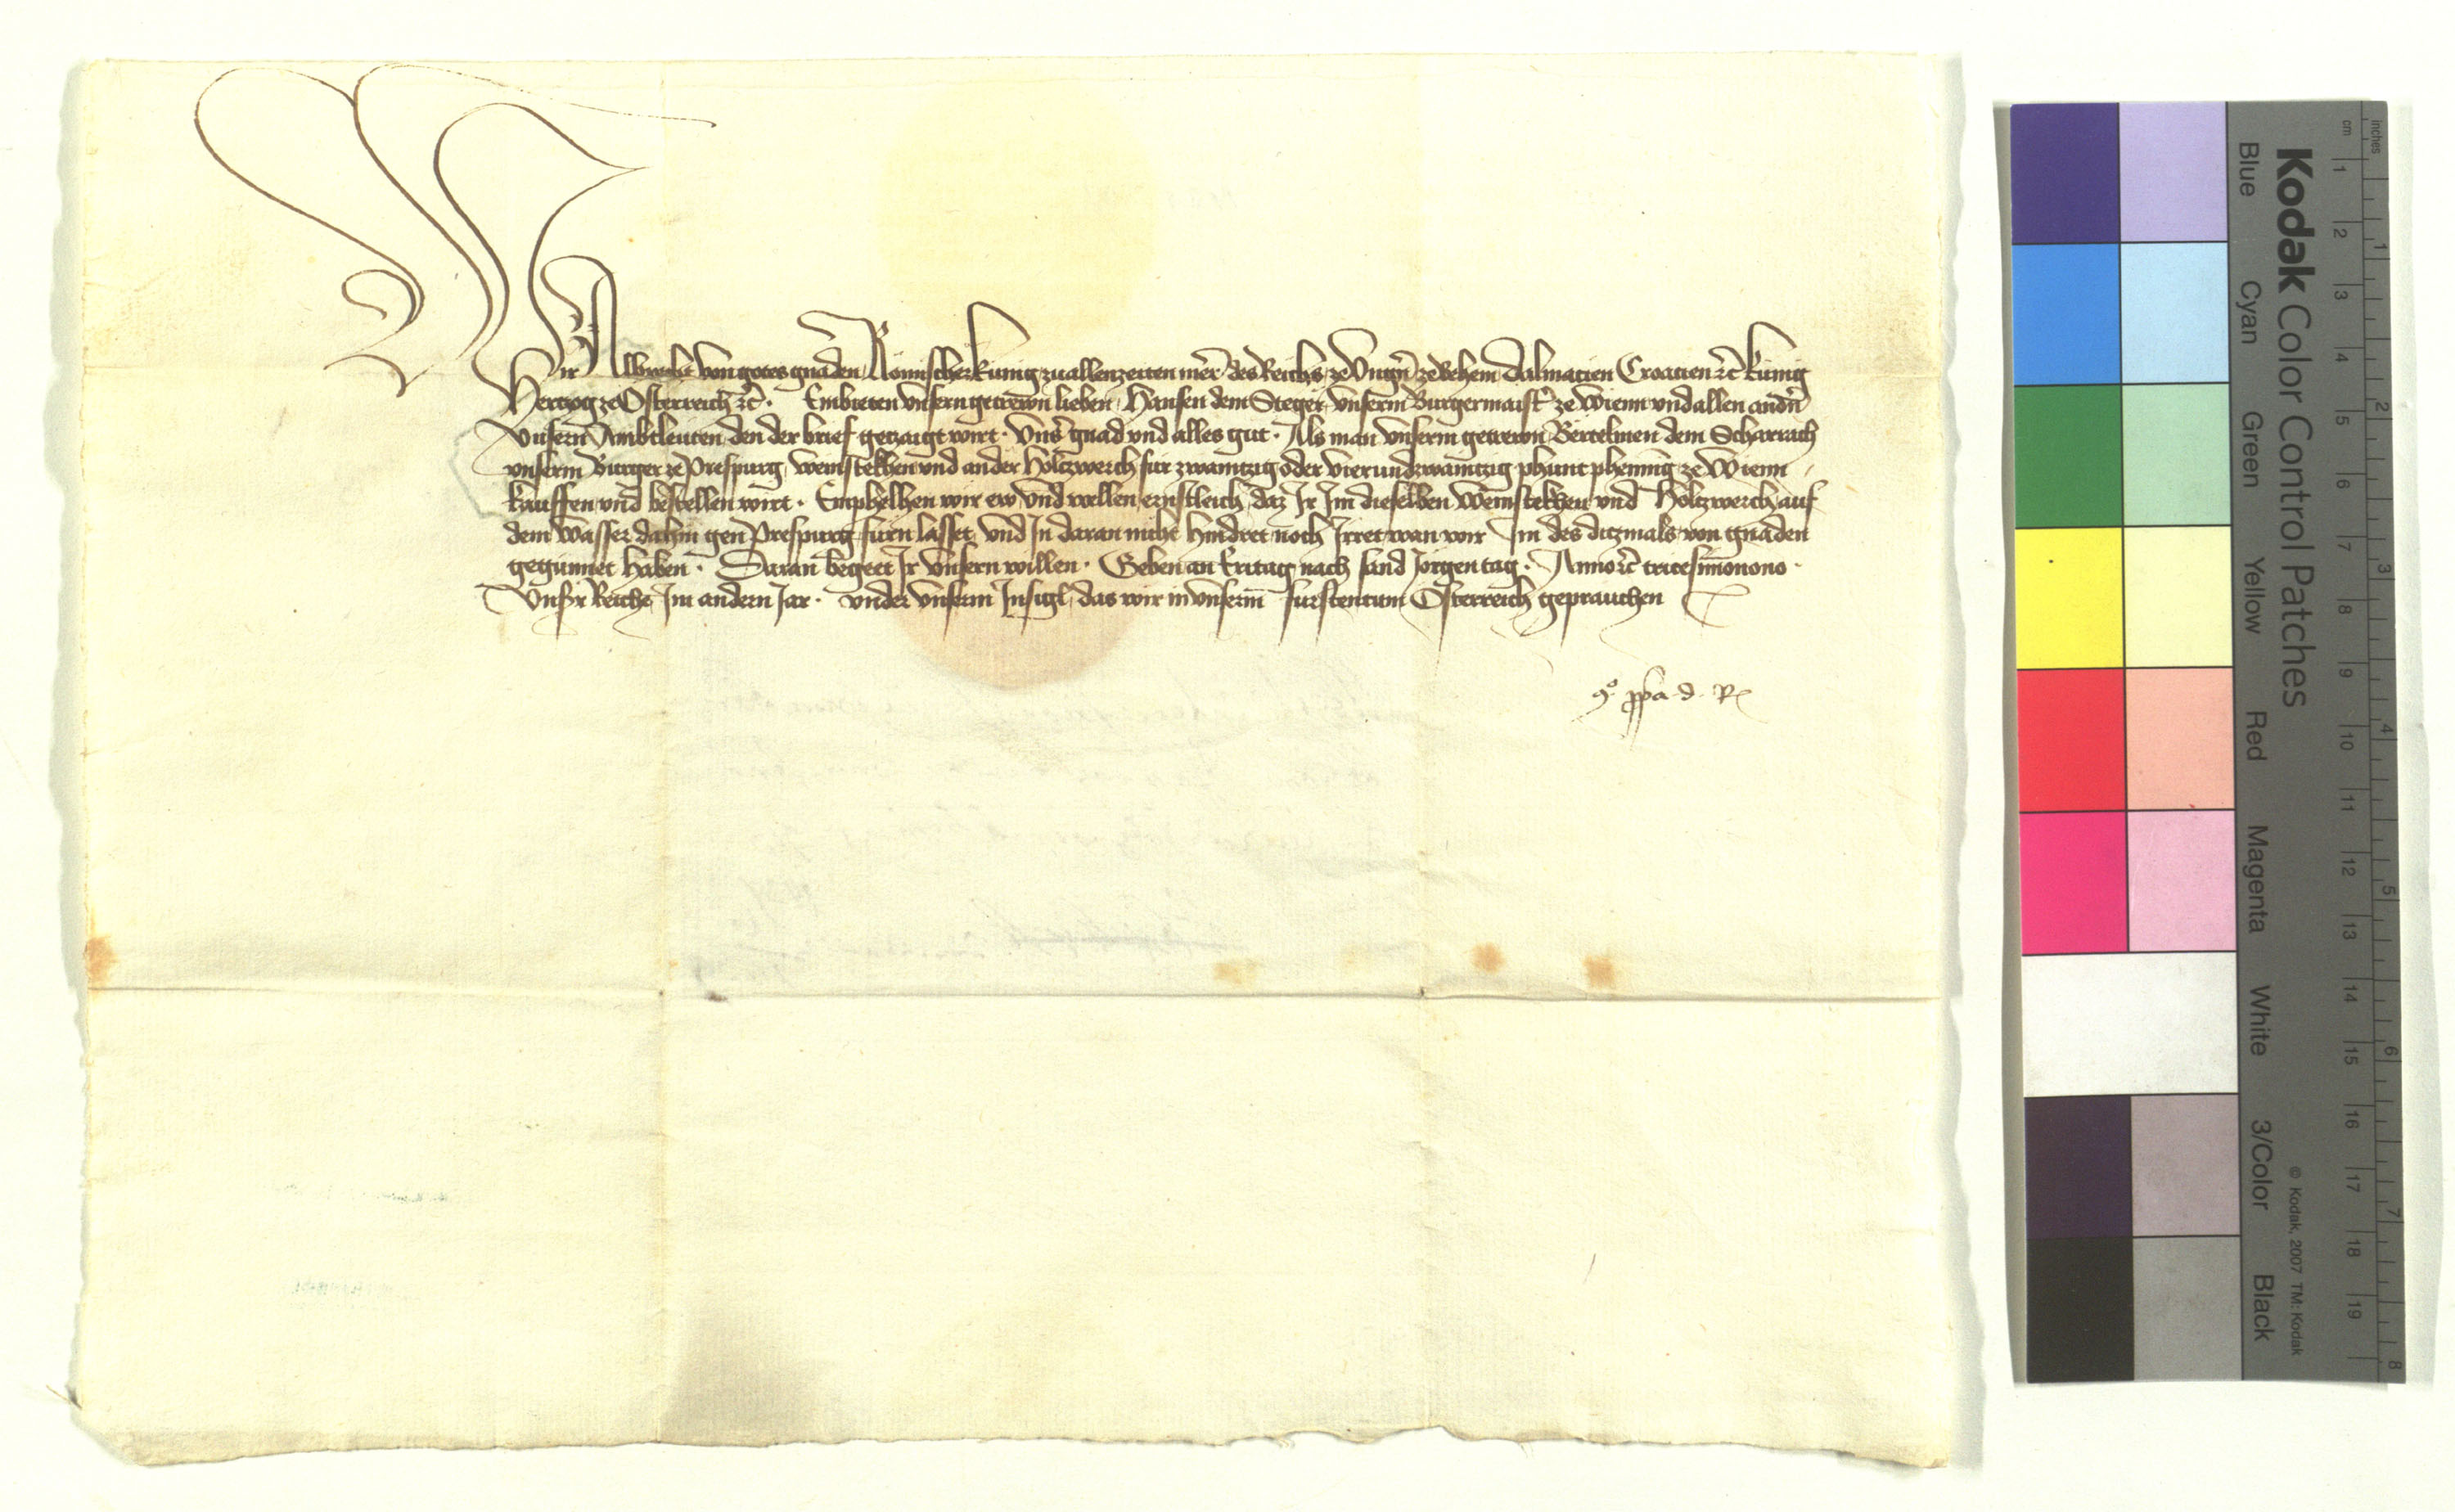 Wir Albrecht von gotes gnaden Römischer kunig zuallenzeiten merer des Reichs ze Vngern ze Behem Dalmacien Croacien etc kunig
Hertzog ze Österreich etc. Embieten vnsern getrewn lieben, Hansen dem Steger, vnserm Burgermaister ze Wienn vnd allen andern
vnsern Ambtleuten, den der brief getzaigt wirt. Vnser gnad vnd alles gut. Als man vnserm getrewn Bertelmen dem Scharrach
vnserm Burger ze Prespurg, weinstekhen vnd ander Holtzwerch für zwaintzig oder vierundzwaintzig phunt phennig ze Wienn
kauffen vnd bestellen wirt. Emphelhen wir ew vnd wellen ernstleich, daz Ir Im dieselben weinstekhen vnd Holtzwerch auf
dem wasser dahin gen Prespurg fürn lasset, vnd In daran nicht hindret noch Irret, wan wir Im des ditzmals von gnaden
gegünnet haben. Daran begeet Ir vnsern willen. Geben an Eritag nach sand Jörgen tag. Anno etc tricesimonono.
Vnsrr Reiche Im andern Jar. vnder vnserm Insigl, das wir in vnserm furstentum Österreich geprauchen
ppa. d. R
Kodak Color Control Patches
Blue Cyan Green Yellow Red Magenta White 3/Color Black
© Kodak, 2007 TM: Kodak
cm 1 2 3 4 5 6 7 8 9 10 11 12 13 14 15 16 17 18 19
inches 1 2 3 4 5 6 7 8